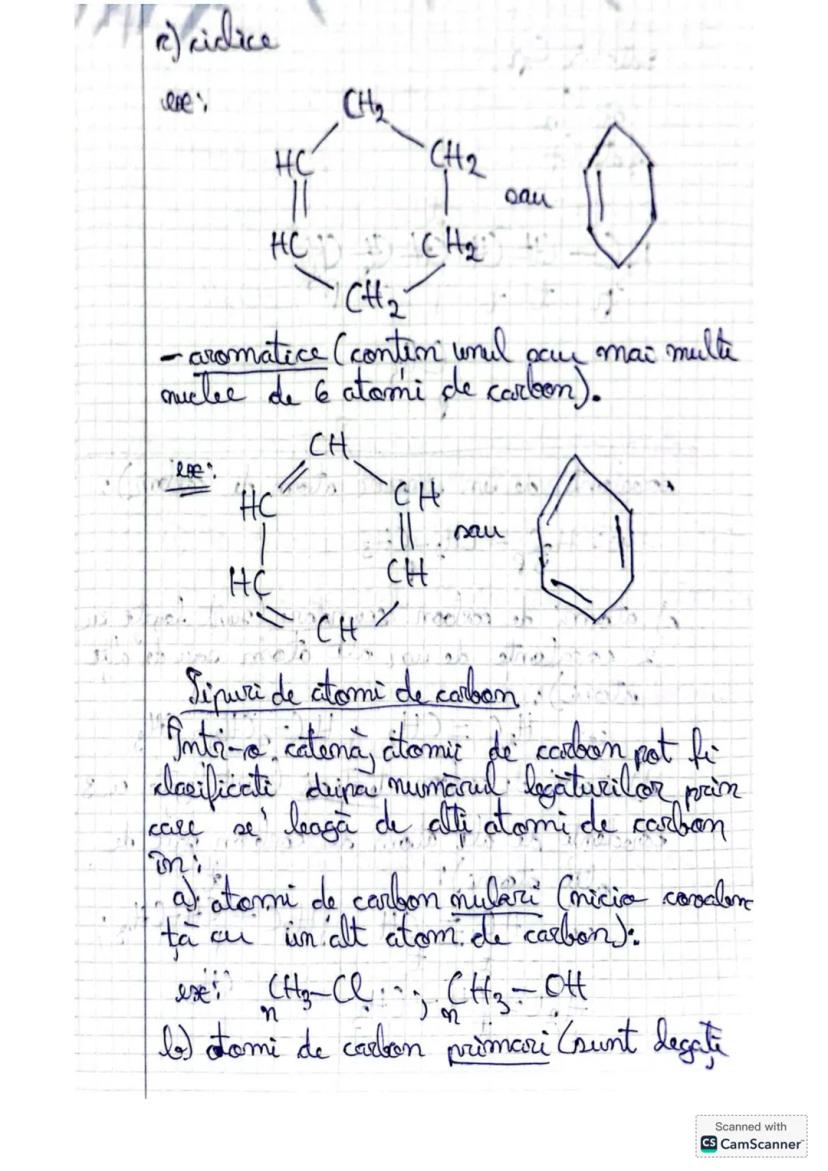 c) ciclice
ex:
CH2
HC CH2
sau
HC CH2
CH2
- aromatice (contin unul sau mai multe
nuclee de 6 atomi de carbon).
ex:
CH
HC CH
sau
HC CH
CH
Tipuri de atomi de carbon
Într-o catenă, atomii de carbon pot fi
clasificati după numărul legăturilor prin
care se leagă de alți atomi de carbon
în:
a) atomi de carbon nulari (nicio covalen
ță cu un alt atom de carbon):
ex: CH3-Cl ; CH3-OH
n n
b) atomi de carbon primari (sunt legați
Scanned with
CS CamScanner